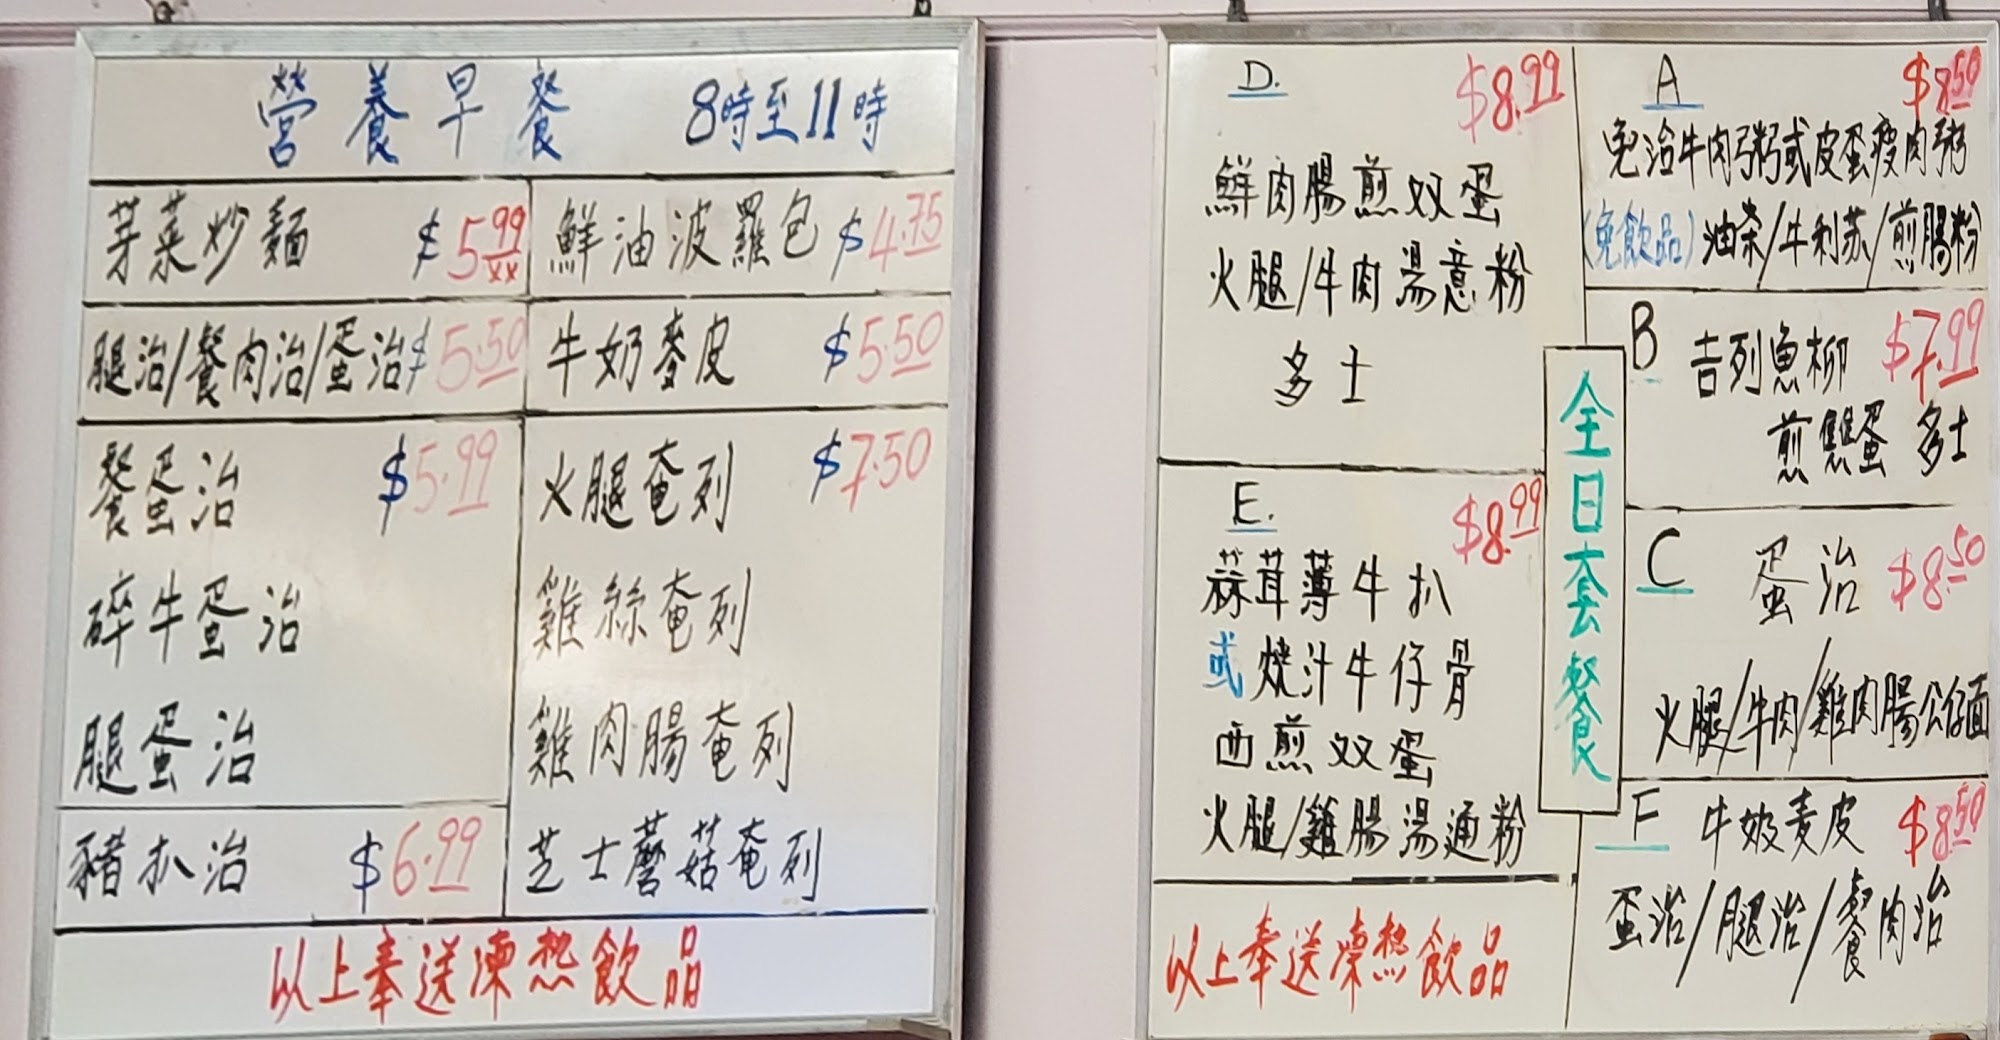 營養早餐 8時至11時
芽菜炒麵 $5.99
鮮油波羅包 $4.75
腿治/餐肉治/蛋治 $5.50
牛奶麥皮 $5.50
餐蛋治 $5.99
碎牛蛋治
腿蛋治
豬扒治 $6.99
火腿奄列 $7.50
雞絲奄列
雞肉腸奄列
芝士蘑菇奄列
以上奉送凍熱飲品
D. $8.99
鮮肉腸煎双蛋
火腿/牛肉湯意粉
多士
E. $8.99
蒜茸薄牛扒
或燒汁牛仔骨
西煎双蛋
火腿/雞腸湯通粉
以上奉送凍熱飲品
全日套餐
A $8.50
免治牛肉粥或皮蛋瘦肉粥
(免飲品)油条/牛利苏/煎腸粉
B $7.99
吉列魚柳
煎雙蛋 多士
C 蛋治 $8.50
火腿/牛肉/雞肉腸公仔面
F 牛奶麦皮 $8.50
蛋治/腿治/餐肉治